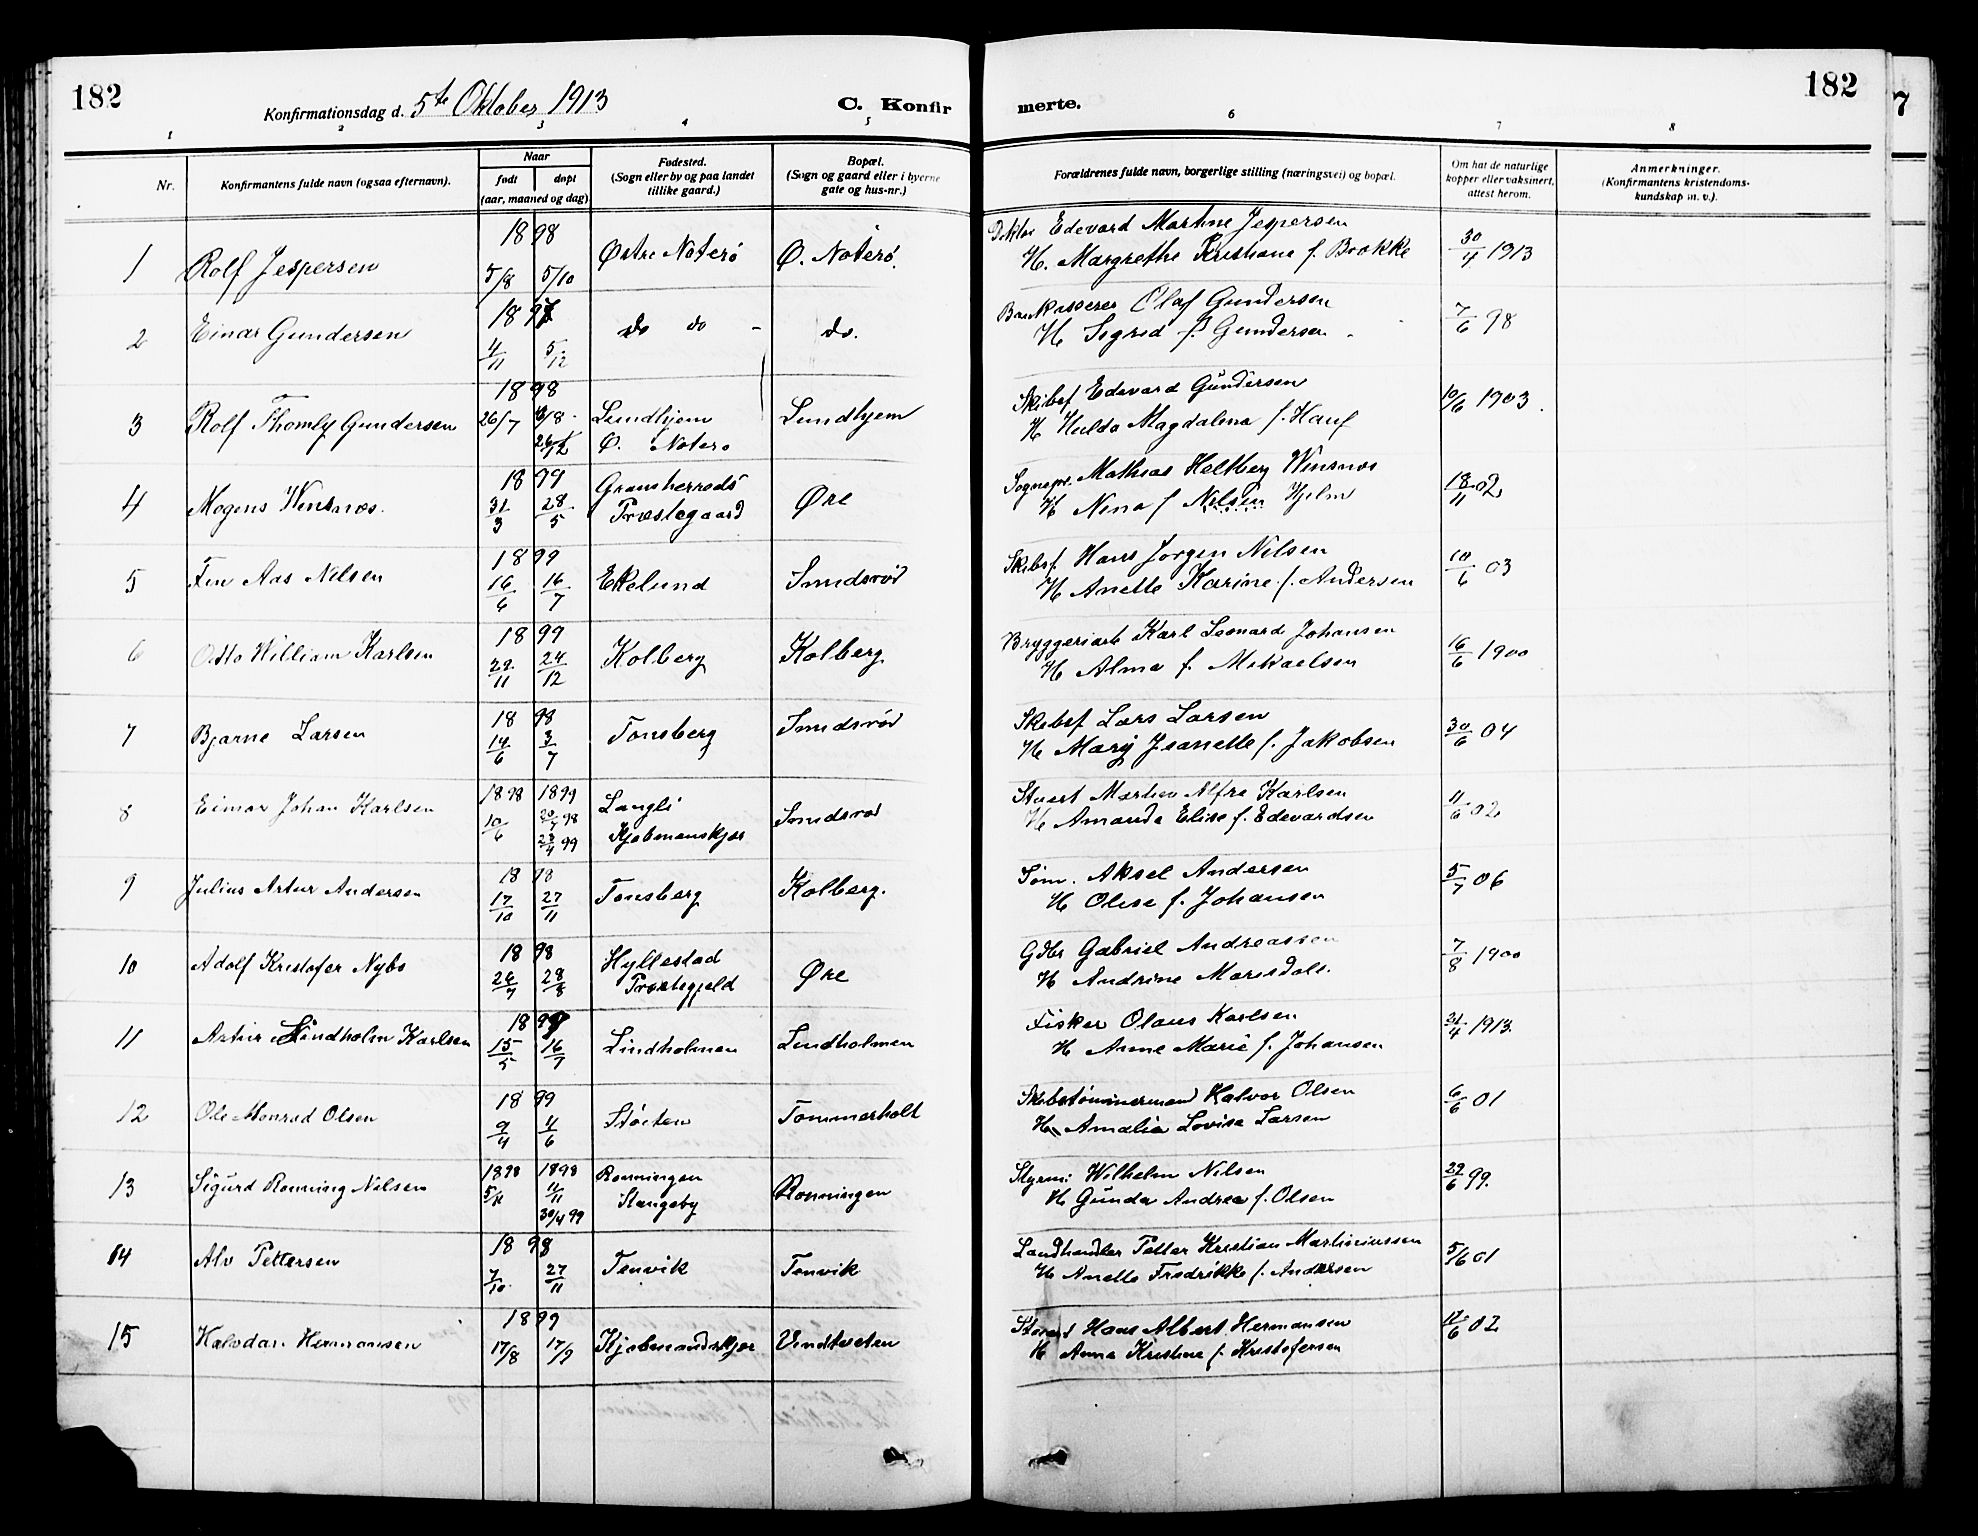 182
Konfirmationsdag d. 5te Oktober 1913
C. Konfir
merte.
182
7
1 2 3 4 5 6 7 8
Nr.
Konfirmantens fulde navn (ogsaa efternavn).
Naar
født
døpt
(aar, maaned og dag)
Fødested.
(Sogn eller by og paa landet
tillike gaard.)
Bopæl.
(Sogn og gaard eller i byerne
gate og hus-nr.)
Forældrenes fulde navn, borgerlige stilling (næringsvei) og bopæl.
Om hat de naturlige
kopper eller vaksinert,
attest herom.
Anmerkninger.
(Konfirmantens kristendoms-
kundskap m. v.).
1898
1 Rolf Jespersen 5/8 5/10 Østre Nøterø Ø. Nøterø.
Edevard Martine Jespersen
H. Margrethe Kristiane f. Brokke
30/4 1913
1897
2 Einar Gundersen 4/11 5/12 do do - do.
Bankkasserer Olaf Gundersen
H Sigrid f Gundersen
7/6 98
1898
3 Rolf Thomly Gundersen 26/7 Lundhjem Lundhjem
Ø. Nøterø
Skibsf Edevard Gundersen
H Hulda Magdalena f. Hauf
10/6 1903.
1899
4 Mogens Winsnæs. 31/3 28/5 Gransherreds Øre
Præstegaard
Sognepr. Mathias Heltberg Winsnæs
H Nina f Nilsen Hjelm
18/11 02
1899
5 Fin Aas Nilsen 16/6 16/7 Ekelund Smidsrød
Skibsf Hans Jørgen Nilsen
H Anette Karine f. Andersen
10/6 03
1899
6 Otto William Karlsen 22/11 24/12 Kolberg Kolberg
Bryggeriarb Karl Leonard Johansen
H Alma f. Mikaelsen
16/6 1900
1898
7 Bjarne Larsen 14/6 3/7 Tønsberg Smidsrød
Skibsf Lars Larsen
H Mary Jeanette f. Jakobsen
30/6 04
1898 1899
8 Einar Johan Karlsen 10/6 20/7 98 Langli Smidsrød
23/4 99 Kjøbmanskjær
Stuert Martin Alfre Karlsen
H Amanda Elise f. Edevardsen
11/6 02
1898
9 Julius Artur Andersen 17/10 27/11 Tønsberg Kolberg.
Søm. Aksel Andersen
H Olise f. Johansen
5/7 06
1898
10 Adolf Kristofer Nybø 26/7 28/8 Hyllestad Øre
Præstegjeld
Gbr Gabriel Andreassen
H Andrine Marisdale.
7/8 1900
1899
11 Artur Lindholm Karlsen 15/5 16/7 Lindholmen Lindholmen
Fisker Olaus Karlsen
H Anne Marie f. Johansen
1913.
1899
12 Ole Monrad Olsen 9/4 4/6 Støiten Tømmerholt
Skibstømmermand Halvor Olsen
H Amalia Lovise Larsen
6/6 01
1898 1898
13 Sigurd Rønning Nilsen Rønningen Rønningen
30/4 99 Stangeby
Styrm: Wilhelm Nilsen
H Gunda Andrea f. Olsen
22/6 99.
1898
14 Alv Pettersen 7/10. 27/11 Tenvik Tenvik
Landhandler Petter Kristian Martiniussen
H Anette Fredrikke f. Andersen
5/6 01
1899
15 Halvdan Hermansen 17/8 17/9 Kjøbmandskjær Vindtveten
Stuert Hans Albert Hermansen
H Anna Kristine f. Kristofersen
02